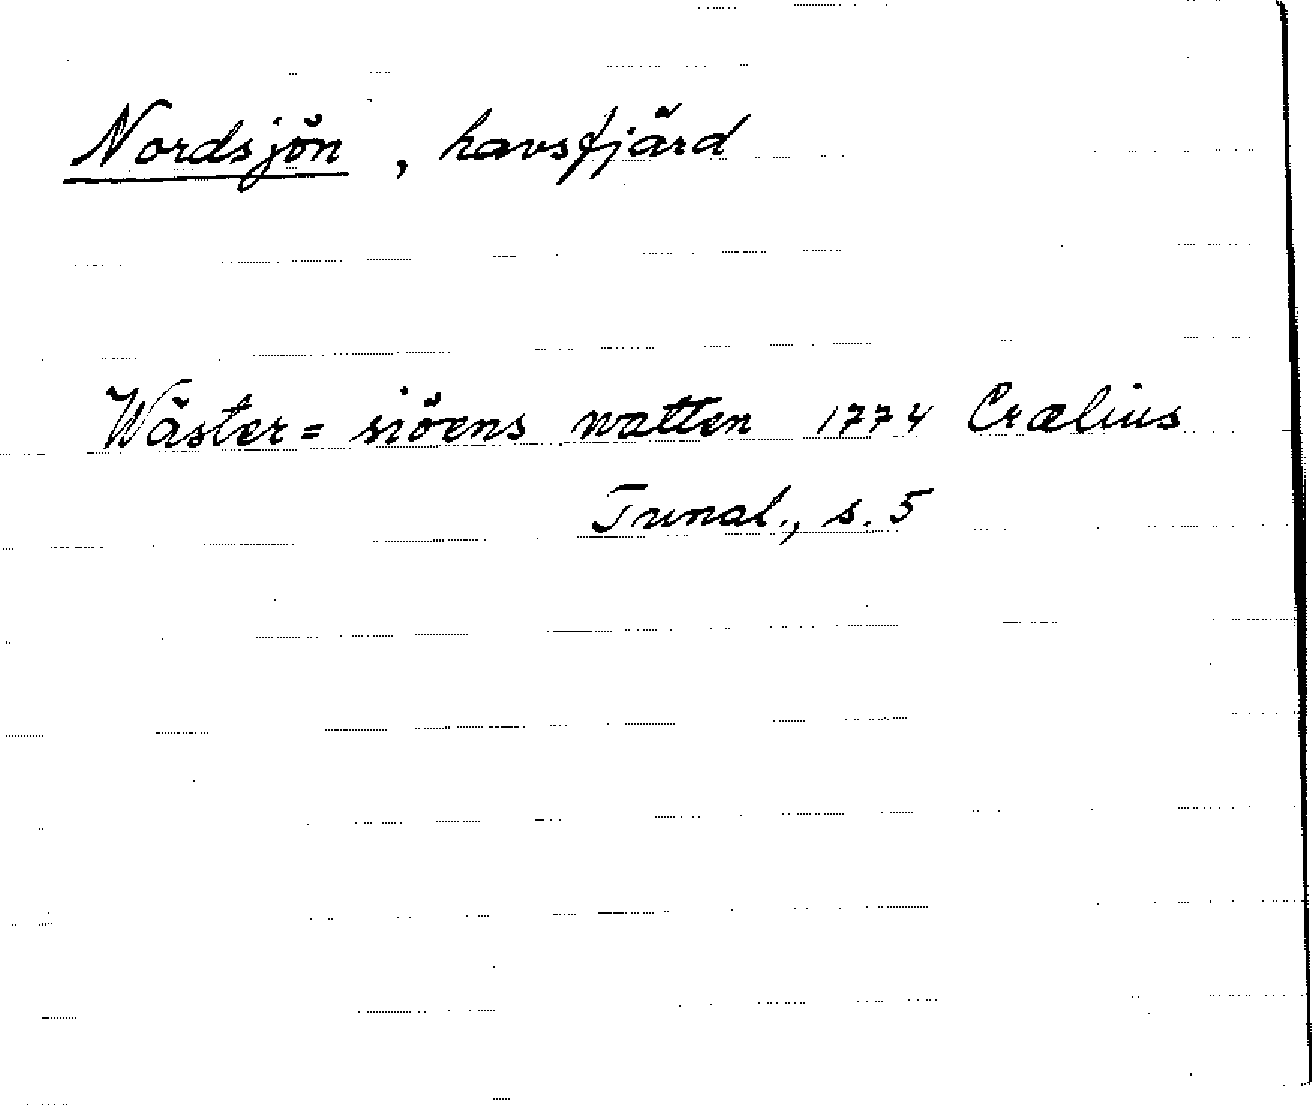 Nordsjön, havsfjärd
Wäster= siöens watten 1774 Crælius
Tunal., s. 5